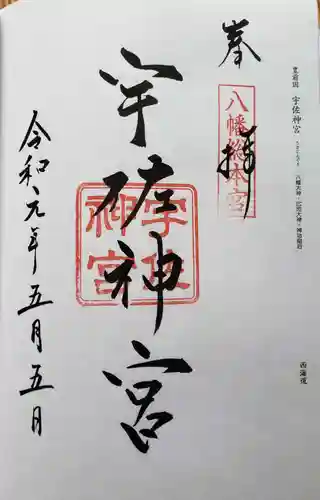 豊前国 宇佐神宮 うさじんぐう 八幡大神・比売大神・神功皇后
西海道
奉拝
八幡総本宮
宇佐神宮
宇佐神宮
令和元年五月五日